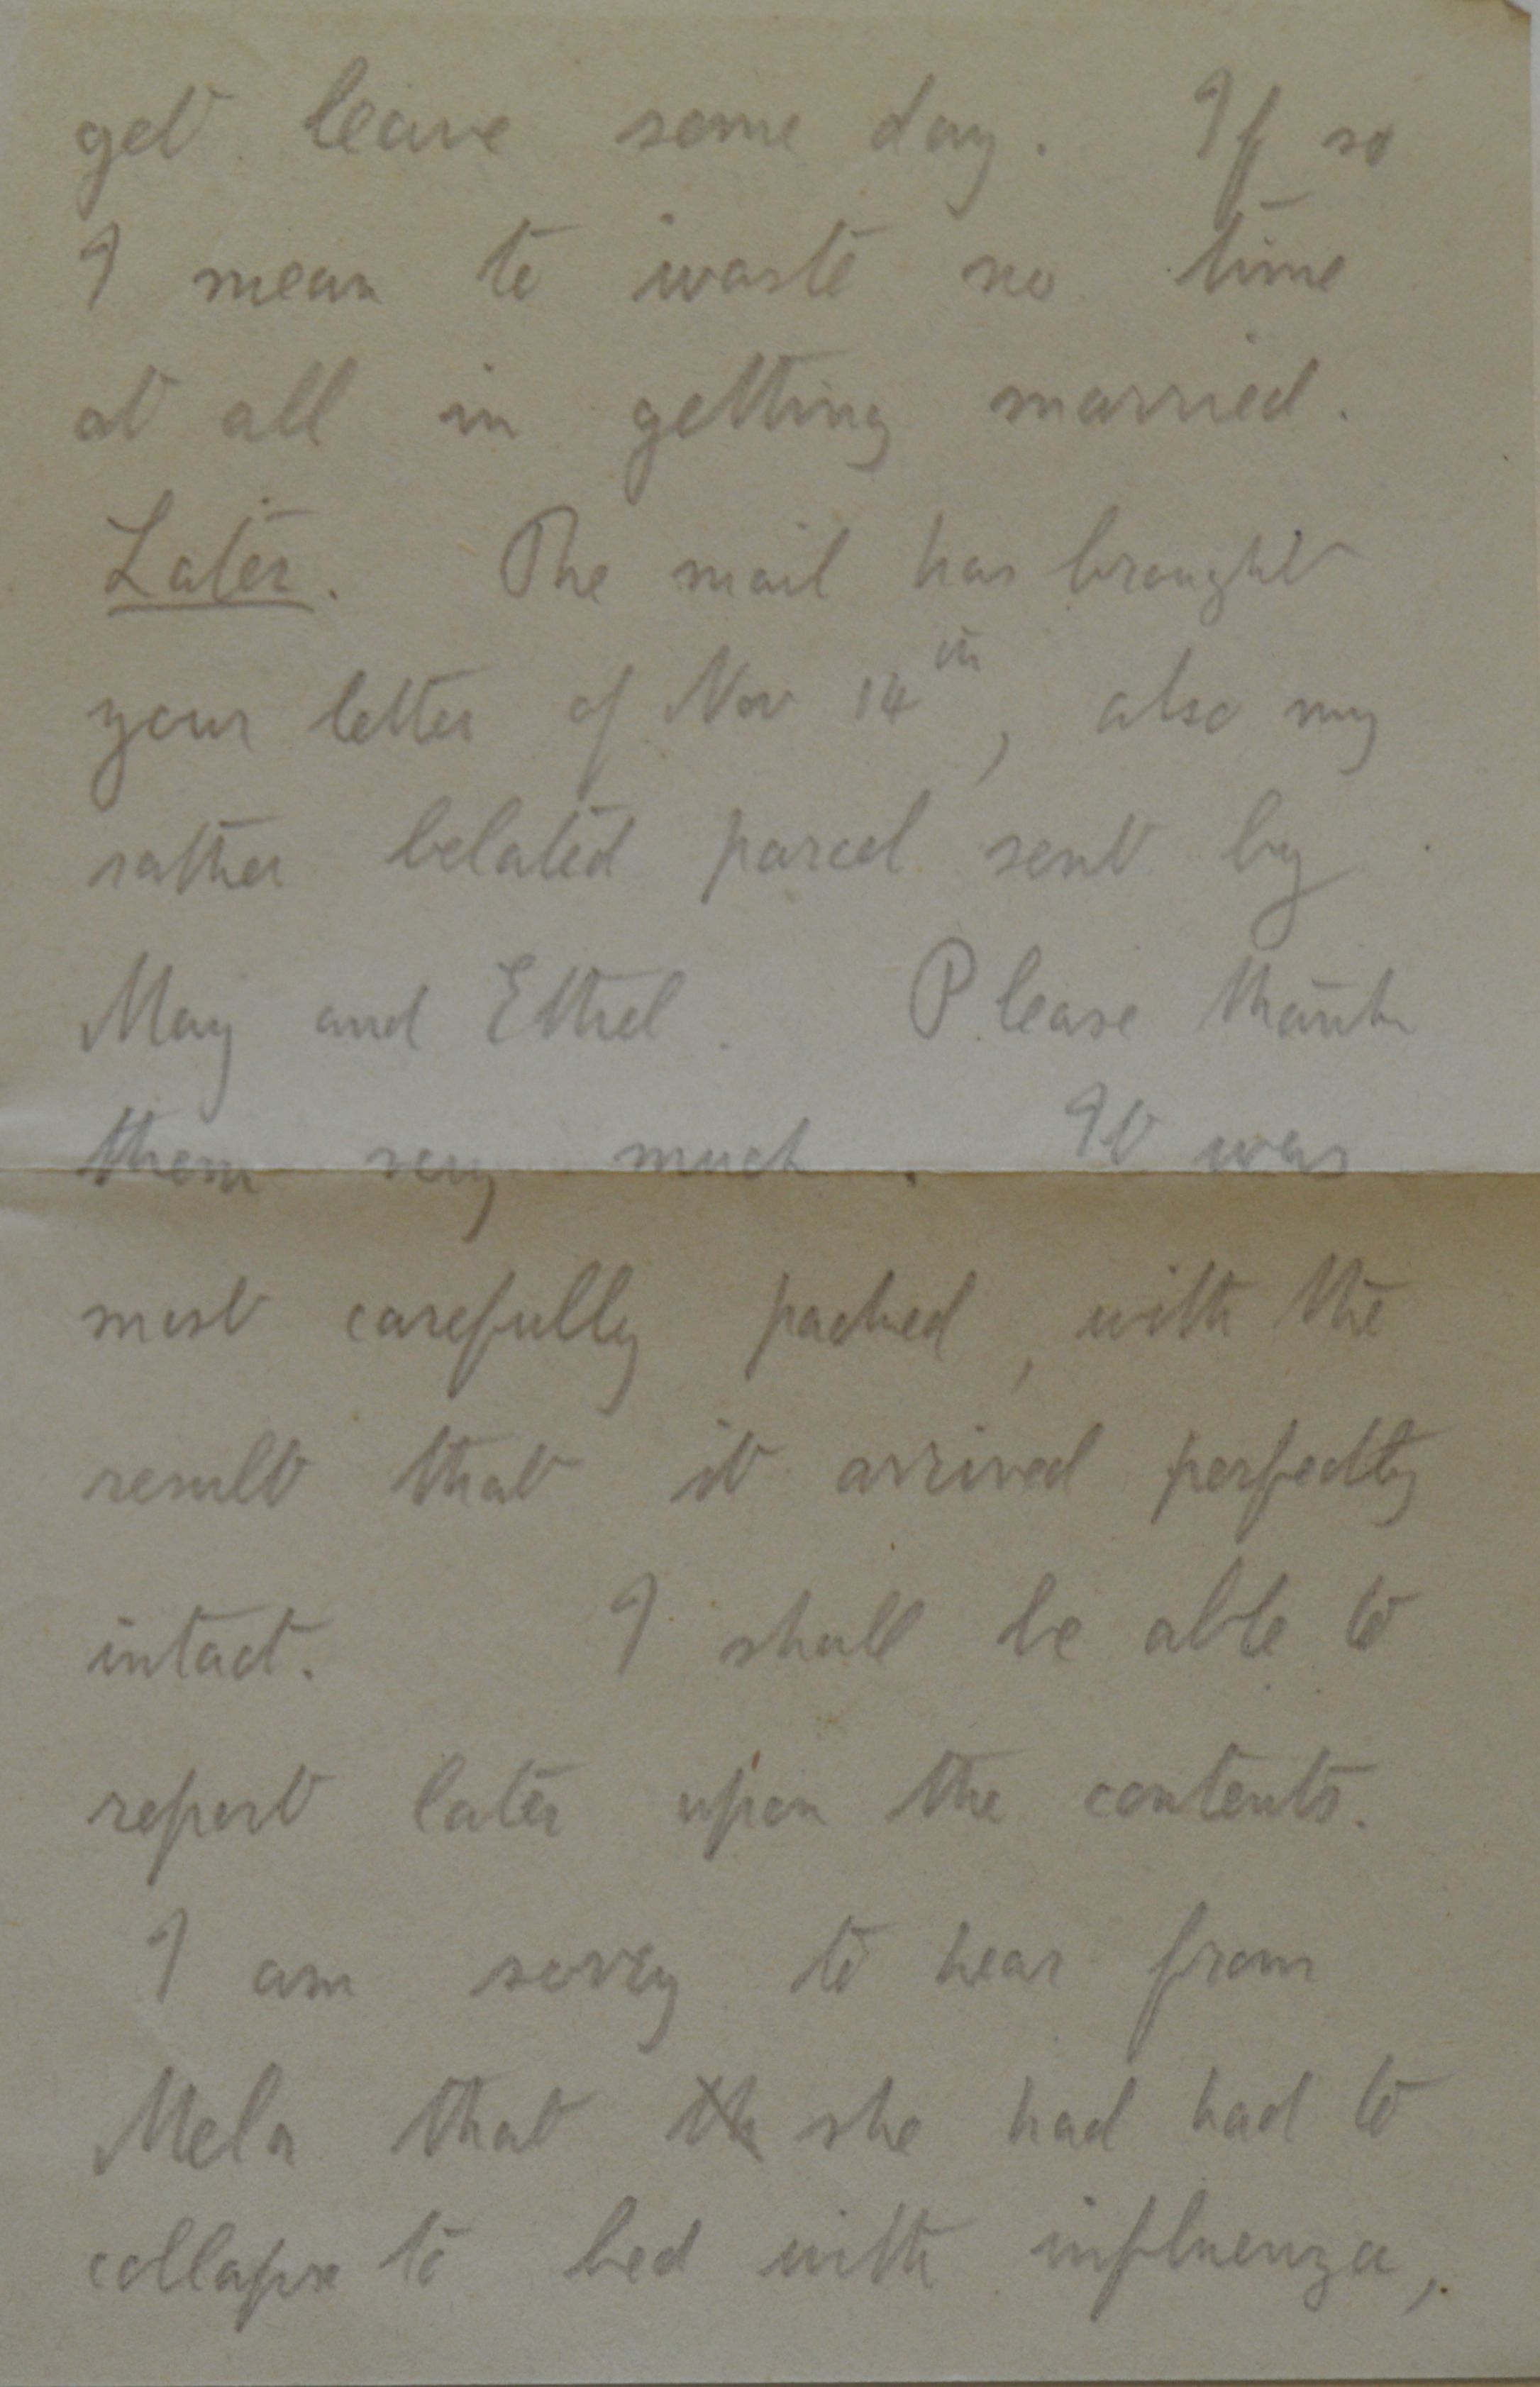 get leave some day. If so
I mean to waste no time
at all in getting married.
Later. The mail has brought
your letter of Nov 14th, also my
rather belated parcel sent by
May and Ethel. Please thank
them very much. It was
most carefully packed, with the
result that it arrived perfectly
intact. I shall be able to
report later upon the contents.
I am sorry to hear from
Mela that th she had had to
collapse to bed with influenza,